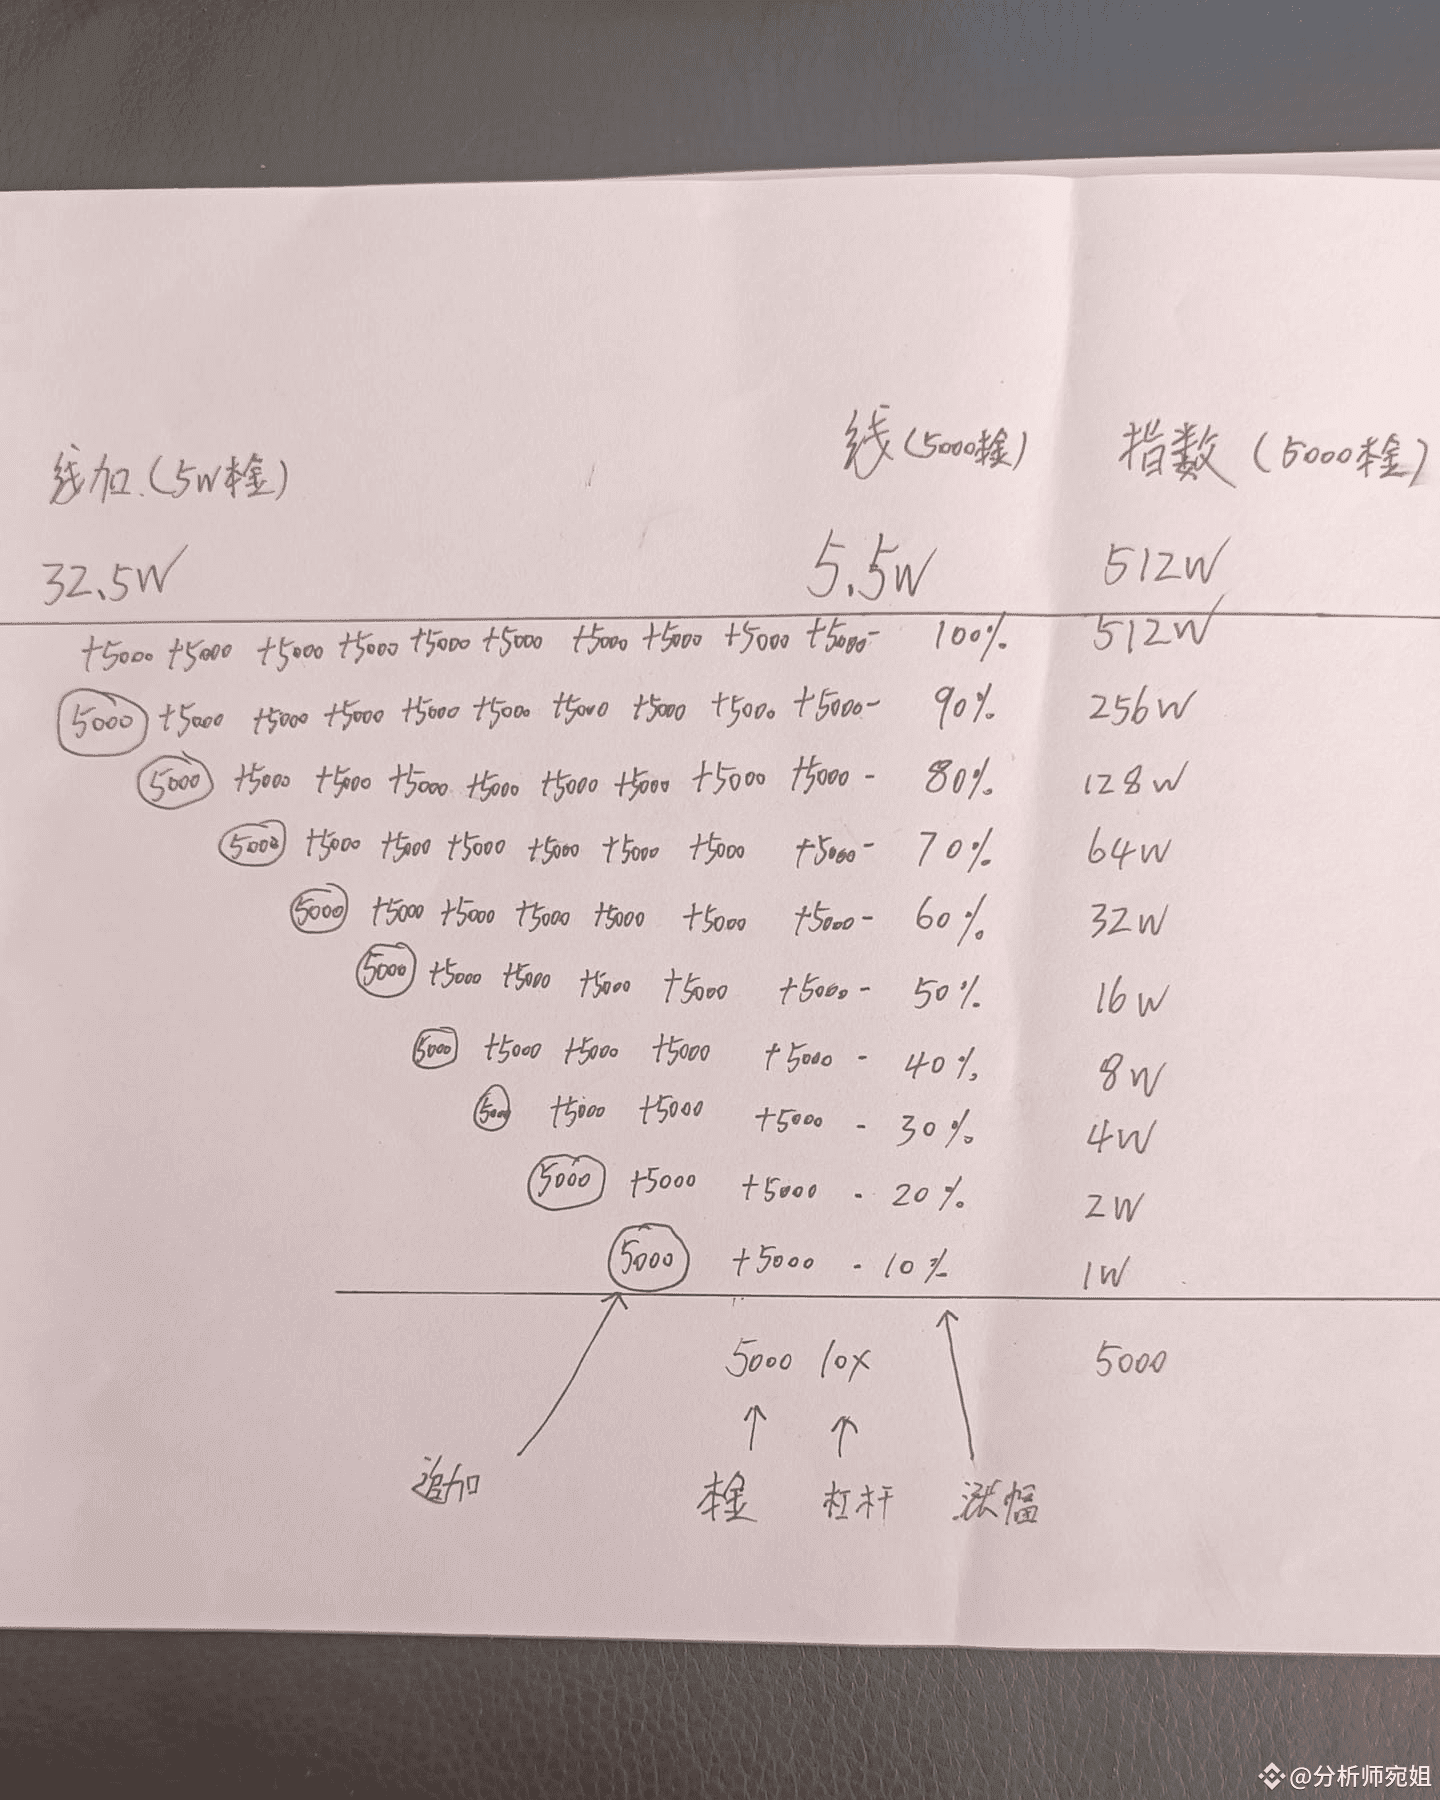 线(5000本金) 指数(5000本金)
线加.(5W本金)
32.5W 5.5W 512W
+5000 +5000 +5000 +5000 +5000 +5000 +5000 +5000 +5000 +5000- 100% 512W
5000 +5000 +5000 +5000 +5000 +5000 +5000 +5000 +5000 +5000- 90% 256W
5000 +5000 +5000 +5000 +5000 +5000 +5000 +5000 +5000 - 80% 128W
5000 +5000 +5000 +5000 +5000 +5000 +5000 +5000- 70% 64W
5000 +5000 +5000 +5000 +5000 +5000 +5000- 60% 32W
5000 +5000 +5000 +5000 +5000 +5000- 50% 16W
5000 +5000 +5000 +5000 +5000 - 40% 8W
5000 +5000 +5000 +5000 - 30% 4W
5000 +5000 +5000 - 20% 2W
5000 +5000 - 10% 1W
5000 10X 5000
追加 本金 杠杆 涨幅
@分析师宛姐